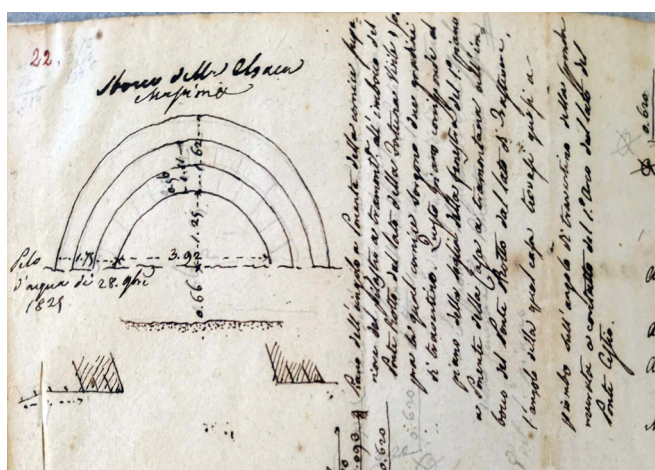 22.
Sbocco della Cloaca
Massima
1.62
1.75
3.92
1.25
0.66
Pelo
d'acqua di 28. 9bre
1825
Piano dell'angolo a Ponente della cornice supe-
riore del pilastro a tramont. all'imbocco del
Ponte Rotto dal lato della Fortuna Virile so-
pra la qual cornice sorgono due gradili
di travertino. Questo piano corrisponde al
piano della soglia della finestra del 1° piano
a Ponente della Casa a tramontana all'im-
bocco del Ponte Rotto dal lato di Trastevere,
l'angolo della qual casa trovasi quasi a
piombo sull'angolo di travertino della sponda
murata a contatto del 1° Arco dal lato del
Ponte Cestio.
0.620
0.093
0.620
0.620